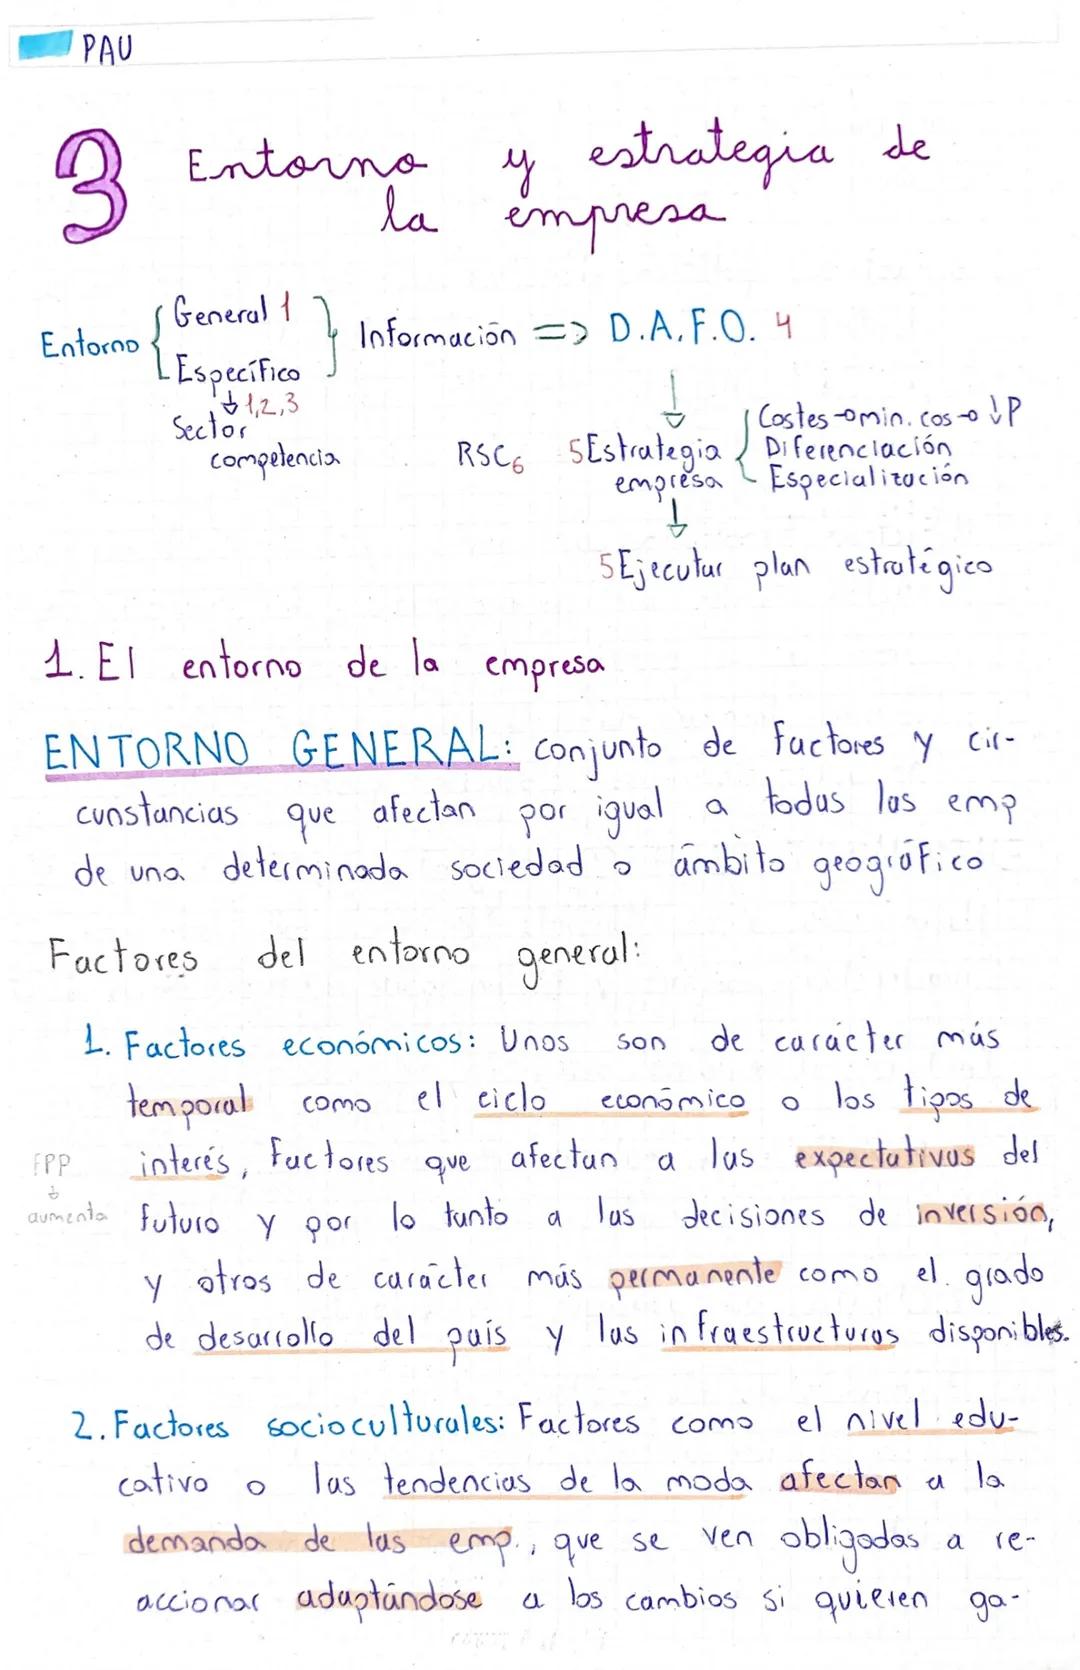 PAU
3 Entorno y estrategia de
la empresa
Entorno { General 1
Específico } Información => D.A.F.O. 4
↓ 1,2,3
Sector
competencia
↓
RSC6 5 Estrategia empresa { Costes → min. cos → ↓P
Diferenciación
Especialización
↓
5 Ejecutar plan estratégico
1. El entorno de la empresa
ENTORNO GENERAL: conjunto de factores y cir-
cunstancias que afectan por igual a todas las emp
de una determinada sociedad o ámbito geográfico
Factores del entorno general:
1. Factores económicos: Unos son de carácter más
temporal como el ciclo económico o los tipos de
interés, factores que afectan a las expectativas del
futuro y por lo tanto a las decisiones de inversión,
y otros de carácter más permanente como el grado
de desarrollo del país y las infraestructuras disponibles.
FPP
↓
aumenta
2. Factores socioculturales: Factores como el nivel edu-
cativo o las tendencias de la moda afectan a la
demanda de las emp., que se ven obligadas a re-
accionar adaptándose a los cambios si quieren ga-